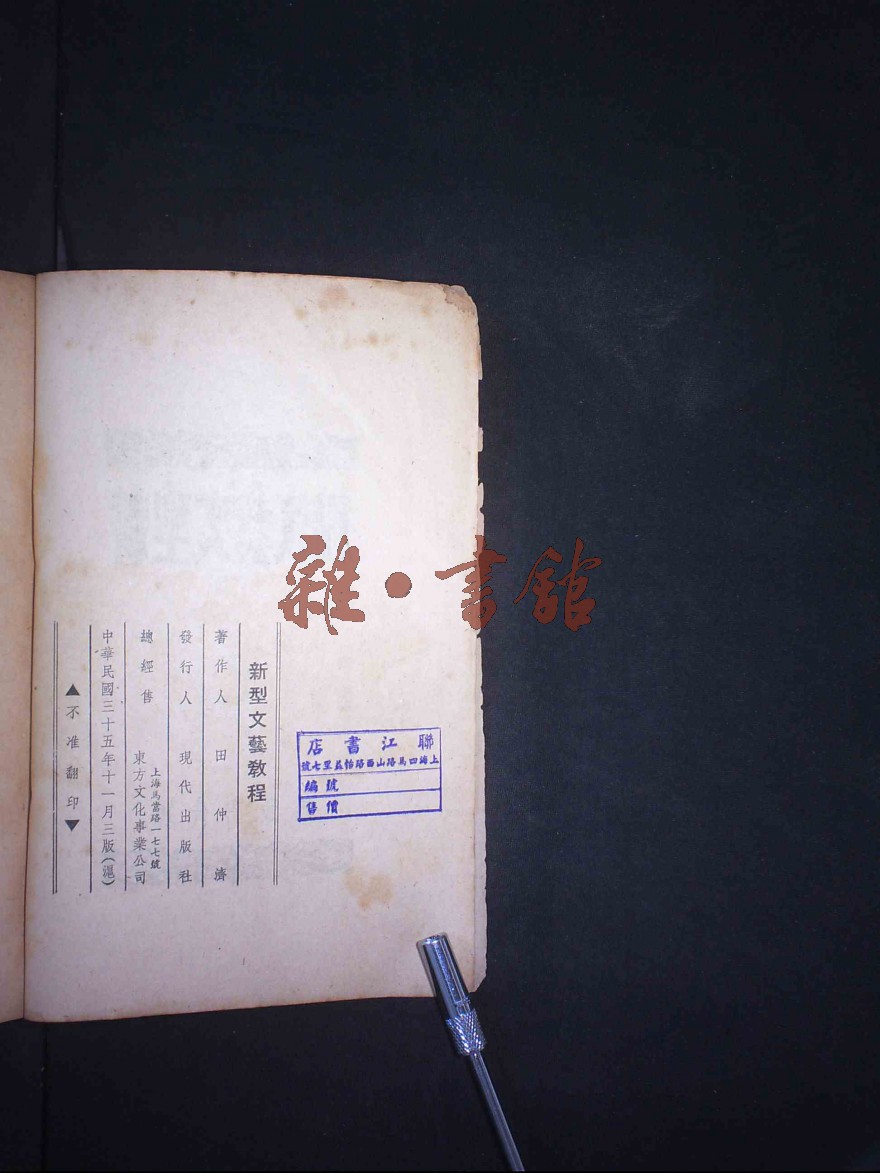 雜·書館
新型文藝教程
著作人 田仲濟
發行人 現代出版社
總經售 東方文化事業公司
上海馬當路一七七號
中華民國三十五年十一月三版(滬)
▲不准翻印▼
聯江書店
上海四馬路山西路怡益里七號
編號
售價